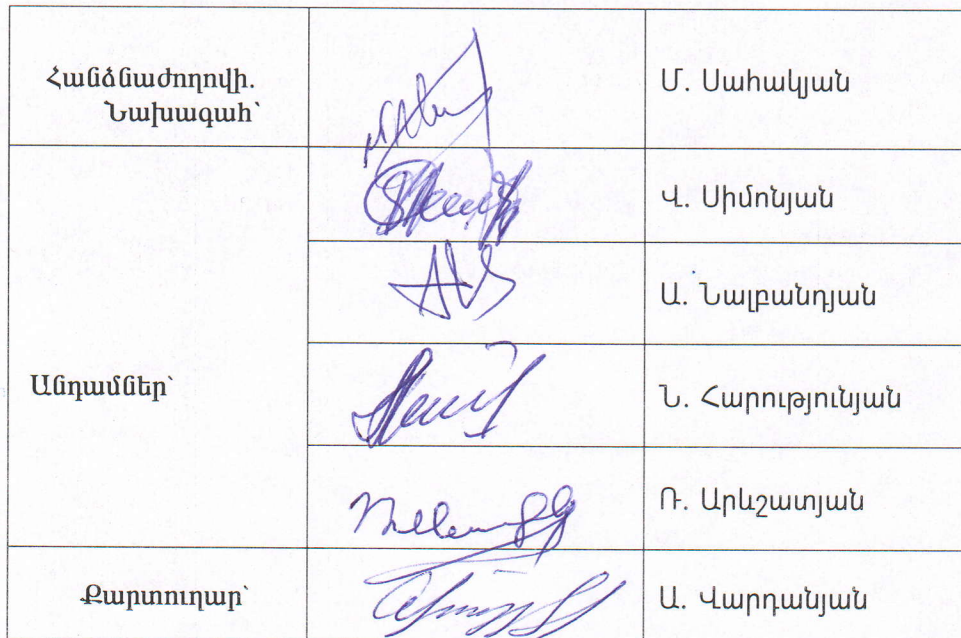 Հանձնաժողովի.
Նախագահ՝
Մ. Սահակյան
Վ. Սիմոնյան
Ա. Նալբանդյան
Անդամներ՝
Ն. Հարությունյան
Ռ. Արևշատյան
Քարտուղար՝
Ա. Վարդանյան